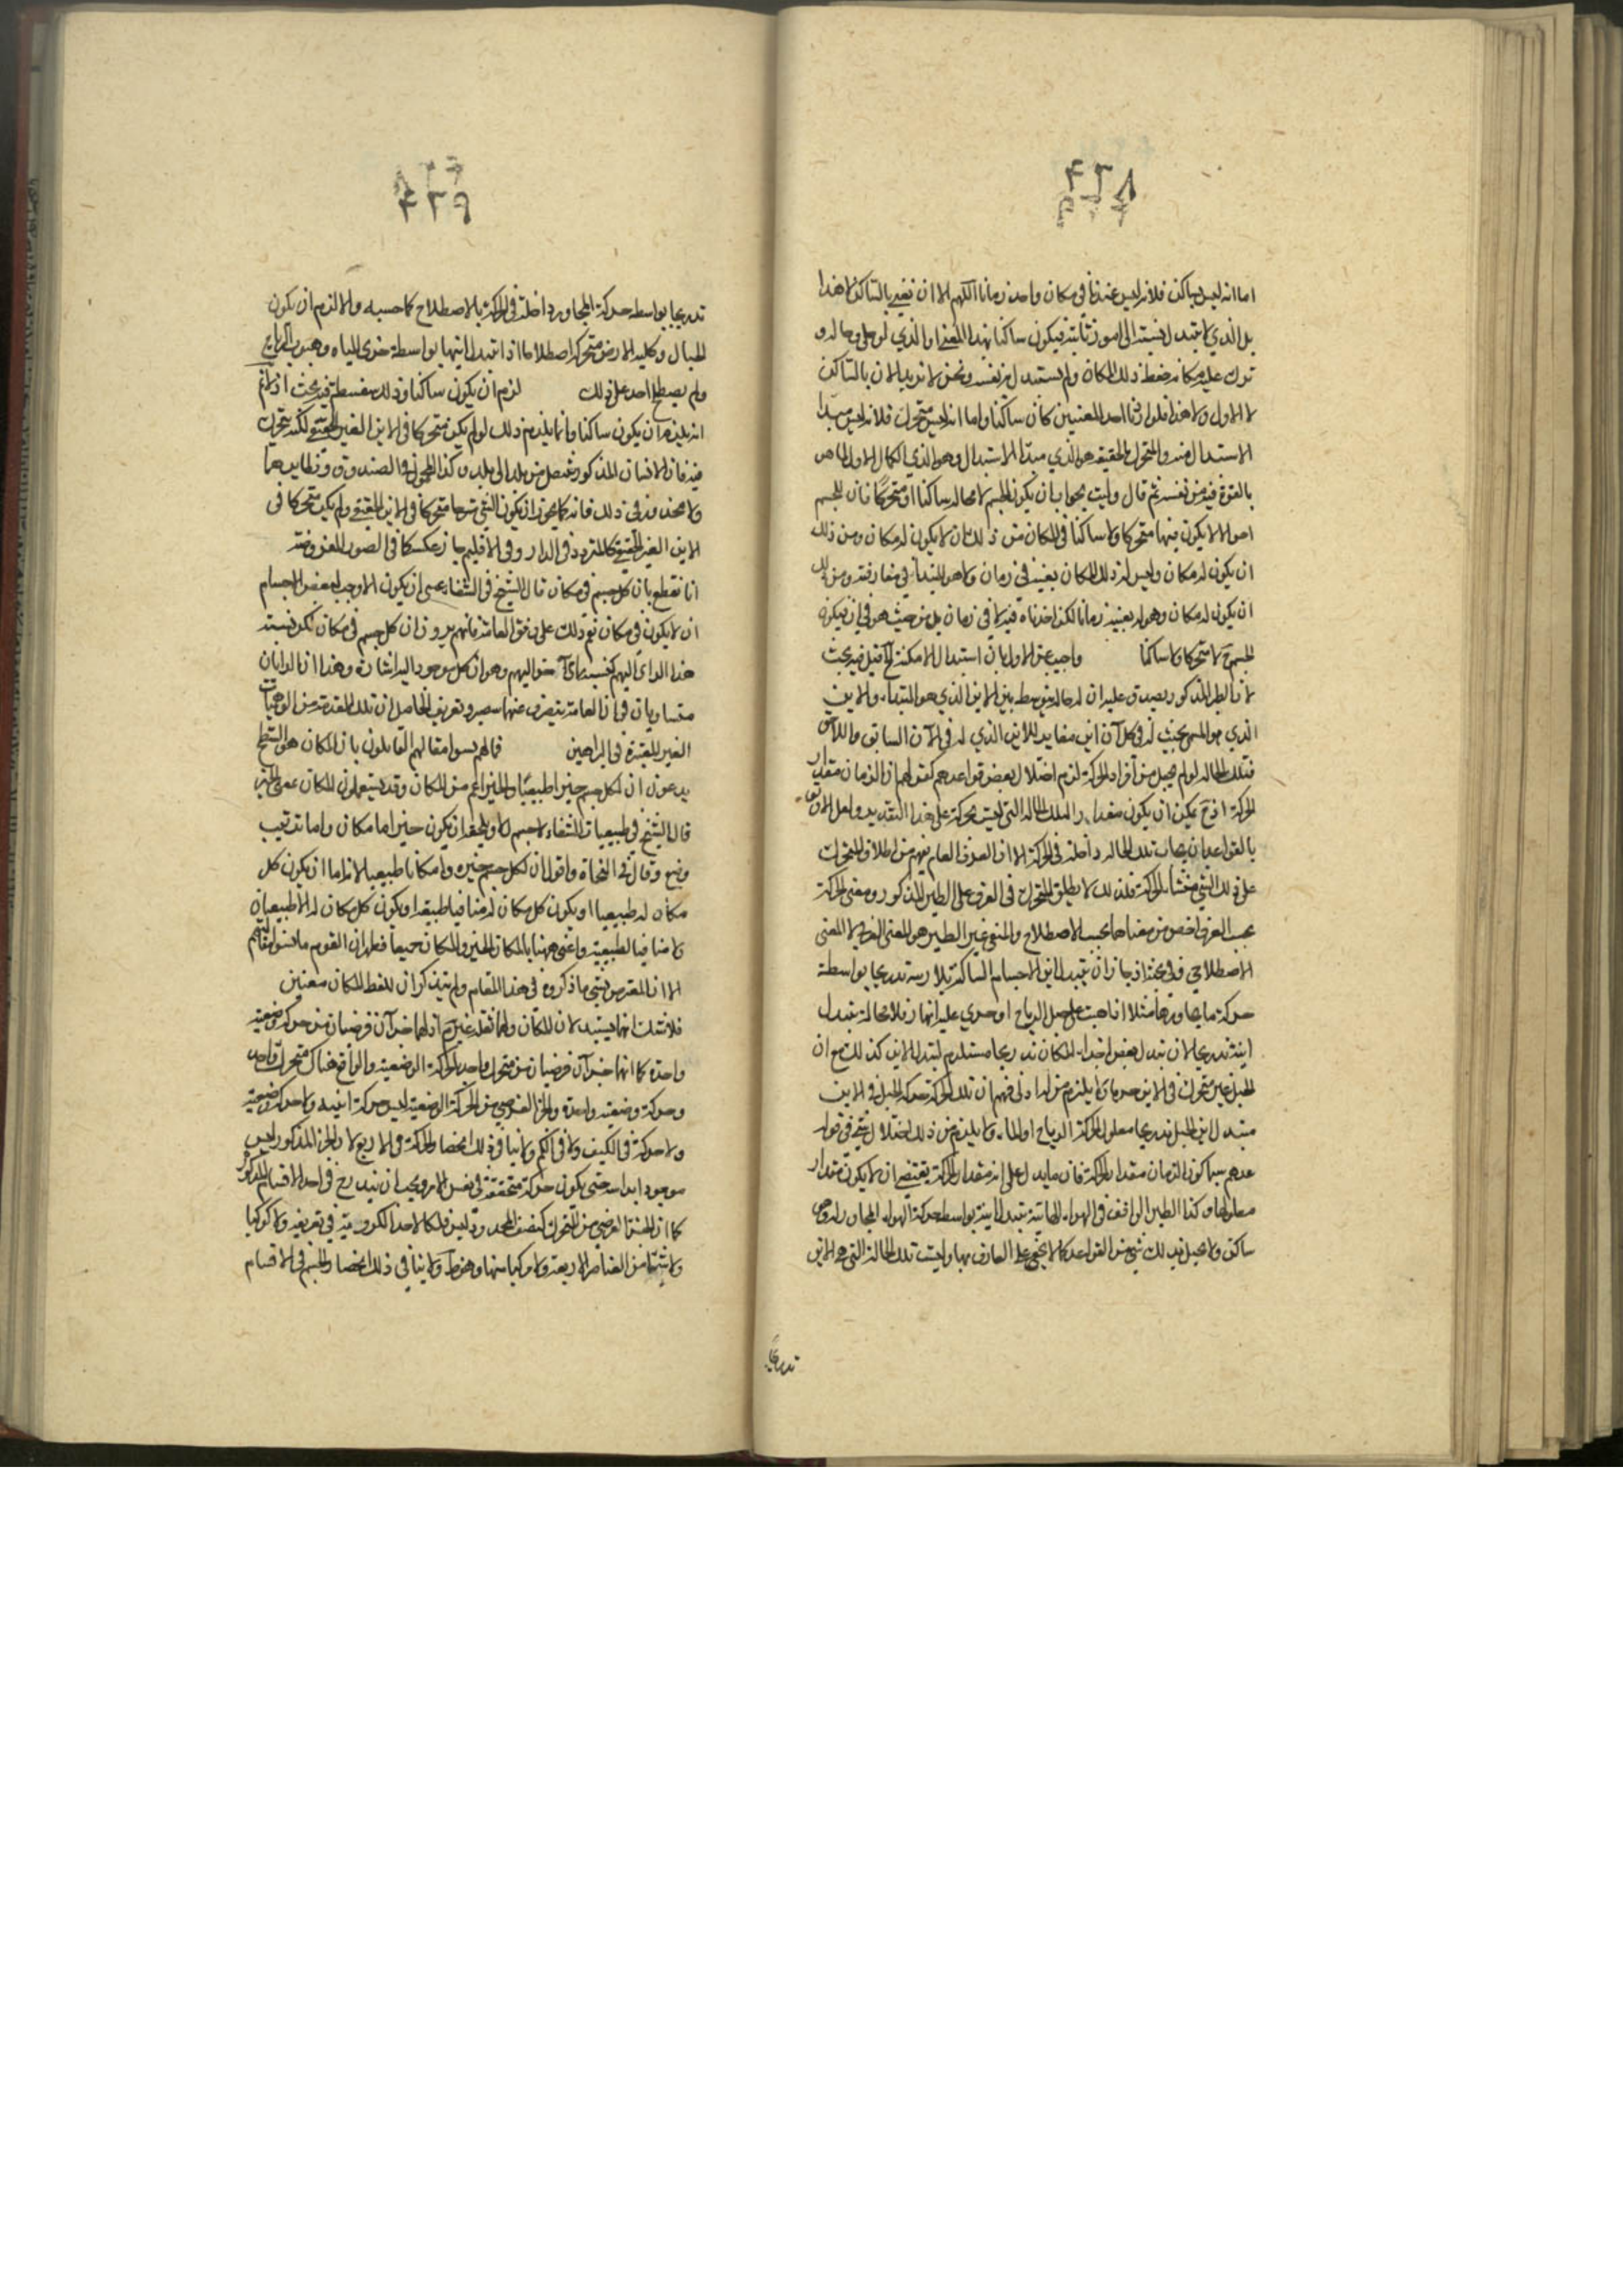 ٤٢٨
اما انه ليس بساكن فلانه ليس عندنا في مكان واحد زمانا اللهم الا ان نعني بالساكن لا هذا
بل الذي لا تتبدل نسبته الى امور ثابتة فيكون ساكنا بهذا المعنى او الذي لو خلى وحاله و
ترك عليه مكانه حفظ ذلك المكان ولم يستبدل من نفسه ونحن لا نريد الان بالساكن
لا الاول ولا هذا فلو اردنا احد المعنيين كان ساكنا واما انه ليس متحرك فلانه ليس مبدا
الاستبدال منه والمتحرك بالحقيقة هو الذي مبدأ الاستبدال وهو الذي الكمال الاول لما هو
بالقوة فيه من نفسه ثم قال وليت يجواب ان يكون الجسم لا محالة ساكنا او متحركا فان للجسم
احوالا لا يكون فيها متحركا ولا ساكنا في المكان من ذلك ان لا يكون له مكان ومن ذلك
ان يكون له مكان وليس له ذلك المكان بعينه في زمان ولا هو المبتدأ في مفارقته ومن ذلك
ان يكون له مكان وهو له بعينه زمانا لكنا اخذناه فيه لا في زمان بل من حيث هو في ان فيكون
الجسم ح لا متحركا ولا ساكنا واجيب عن الاول بان استبدال الامكنة قيل فيه بحث
لان الطير المذكور يصدق عليه ان له حالة متوسط بين الاين الذي هو المبتدأ والاين
الذي هو بحيث له في كل آن اين مغاير للاين الذي له في الآن السابق واللاحق
فتلك الحالة لو لم يجعل من أفراد الحركة لزم اختلال بعض قواعدهم كقولهم ان الزمان مقدار
الحركة اذ ح يمكن ان يكون مقدار الملك الحالة التي ليست بحركة على هذا التقدير ولعل الاوفق
بالقواعد ان يجاب تلك الحالة داخلة في الحركة الا ان العرف العام يفهم من اطلاق المتحرك
على ذلك الشئ منشأ الحركة فلذلك لا يطلق المتحرك في العرف على الطير المذكور ومعنى الحركة
بحسب العرف اخص من معناها بحسب الاصطلاح والمنفى عن الطير هو المعنى العرفي لا المعنى
الاصطلاحي وفي بحث اذ جاز ان يتبدل اين الاجسام الساكنة بلا ريبة تدريجا بواسطة
حركة ما يجاورها مثلا اذا هبت على جبل الرياح او جرى عليه انهار فلا محالة يتبدل
اينه تدريجا لان تبدل بعض اجزاء المكان تدريجا مستلزم لتبدل الاين كذلك مع ان
الجبل غير متحرك في الاين ولا يلزم من ان تلك الحركة حركة الجبل في الاين
مبتدل اين الجبل تدريجا معلول لحركة الرياح او الماء ولا يلزم من ذلك اختلال شئ في قوا
عدهم سيما كون الزمان مقدار الحركة فان ما يدل على انه مقدار الحركة يقتضي ان لا يكون مقدار
معلولها وكذا الطير الواقف في الهواء يتبدل اينه بواسطة حركة الهواء المجاور له وهو
ساكن ولا يختل بذلك شئ من القواعد كما لا يخفى على العارف بها وليست تلك الحالة التي هي الاين
تدريجا
٤٢٩
تدريجا بواسطة حركة المجاور داخلة في الحركة بالاصطلاح كما حسبه والا لزم ان يكون
الجبال وكلية الارض متحركة اصطلاحا اذا تبدل اينها بواسطة جرى المياه وهبوب الرياح
ولم يصطلح احد على ذلك لزم ان يكون ساكنا وذلك سفسطة فيه بحث اذ لا نم
انه يلزم ان يكون ساكنا وانما يلزم ذلك لو لم يكن متحركا في الاين الغير الحقيقي لكنه يتحرك
فيه فان الانسان المذكور ينتقل من بلد الى بلد وكذا المحمول في الصندوق ونظايرهما
ولا محذور في ذلك فانه كما يجوز ان يكون الشئ متحركا في الاين الحقيقي ولم يكن متحركا في
الاين الغير الحقيقي كالمتردد في الدار وفي الاقليم جاز عكسه كما في الصور المفروضة
انا نقطع بان كل جسم في مكان قال الشيخ في الشفا عسى ان يكون الاوجب لبعض الاجسام
ان لا يكون في مكان نعم ذلك على وفق العامة فانهم يرون ان كل جسم في مكان لكن نسبة
هذا الراي اليهم كنسبة راى آخر اليهم وهو ان كل موجود اليه اشارة وهذا ان الرايان
متساويان في ان العامة ينصرف عنهما وتعريف الحاصل ان تلك المقدمة من الوهميات
الغير المعتبرة في البراهين فانهم نسوا مقالهم القايلون بان المكان هو السطح
يدعون ان لكل جسم حيزا طبيعيا والحيز اعم من المكان وقد يستعملون المكان بمعنى الحيز
قال الشيخ في طبيعيات الشفاء لا جسم الا ويلحقه ان يكون حيز اما مكان واما ترتيب
وضع وقال في النجاة واقول ان لكل جسم حيزه وامكانا طبيعيا لانه اما ان يكون كل
مكان له طبيعيا او يكون كل مكان له منافيا لطبيعته او يكون كل مكان له لا طبيعيا
ولا منافيا لطبيعته واعنى ههنا بالمكان الحيز والمكان جميعا فظهر ان القوم ما نسوا مقالهم
الا ان المعترض نسى ما ذكروه في هذا المقام ولم يتذكر ان للفظ المكان معنيين
واحدة كما انهما جزآن فرضيان من متحرك واحد بالحركة الوضعية والواقع هناك متحرك واحد
وحركة وضعية واحدة والجزء الفرضي من الحركة الوضعية ليس حركة اينية ولا حركة وضعية
ولا حركة في الكيف ولا في الكم ولا ينافي ذلك انحصار الحركة في الاربع لان الجزء المذكور ليس
موجودا براسه حتى يكون حركة متحققة في نفس الامر ويجب ان يندرج في احد الاقسام المذكور
كما ان الجزء الفرضي من المتحرك كنصف المحدد وليس فلكا لاخذ الكروية في تعريفه ولا كوكبا
ولا شيئا من العناصر الاربعة ولا مركبا منها وهو ظ ولا ينافي ذلك انحصار الجسم في الاقسام